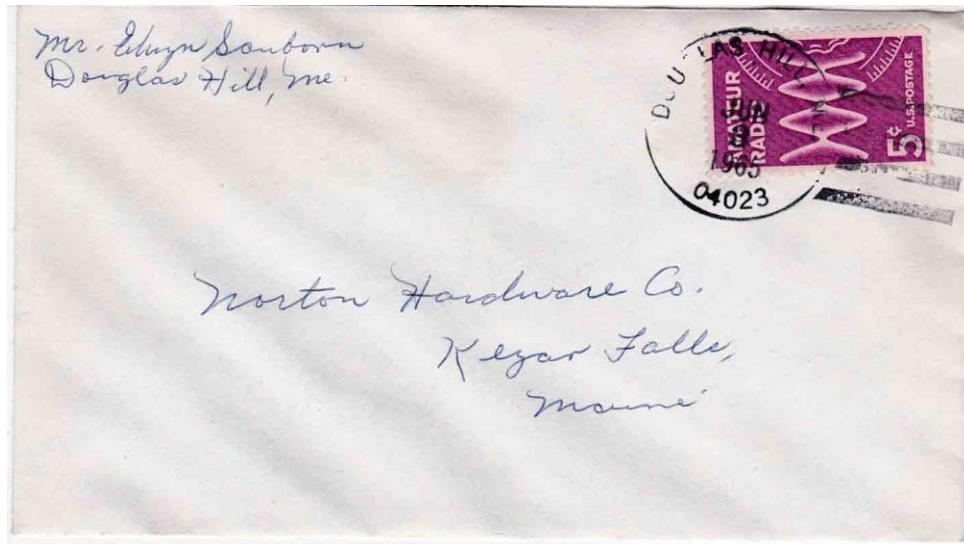 Mr. Elwyn Sanborn
Douglas Hill, Me.
DOUGLAS HILL
JUN
1965
04023
AMATEUR
RADIO
5¢
U.S. POSTAGE
Norton Hardware Co.
Kezar Falls,
Maine